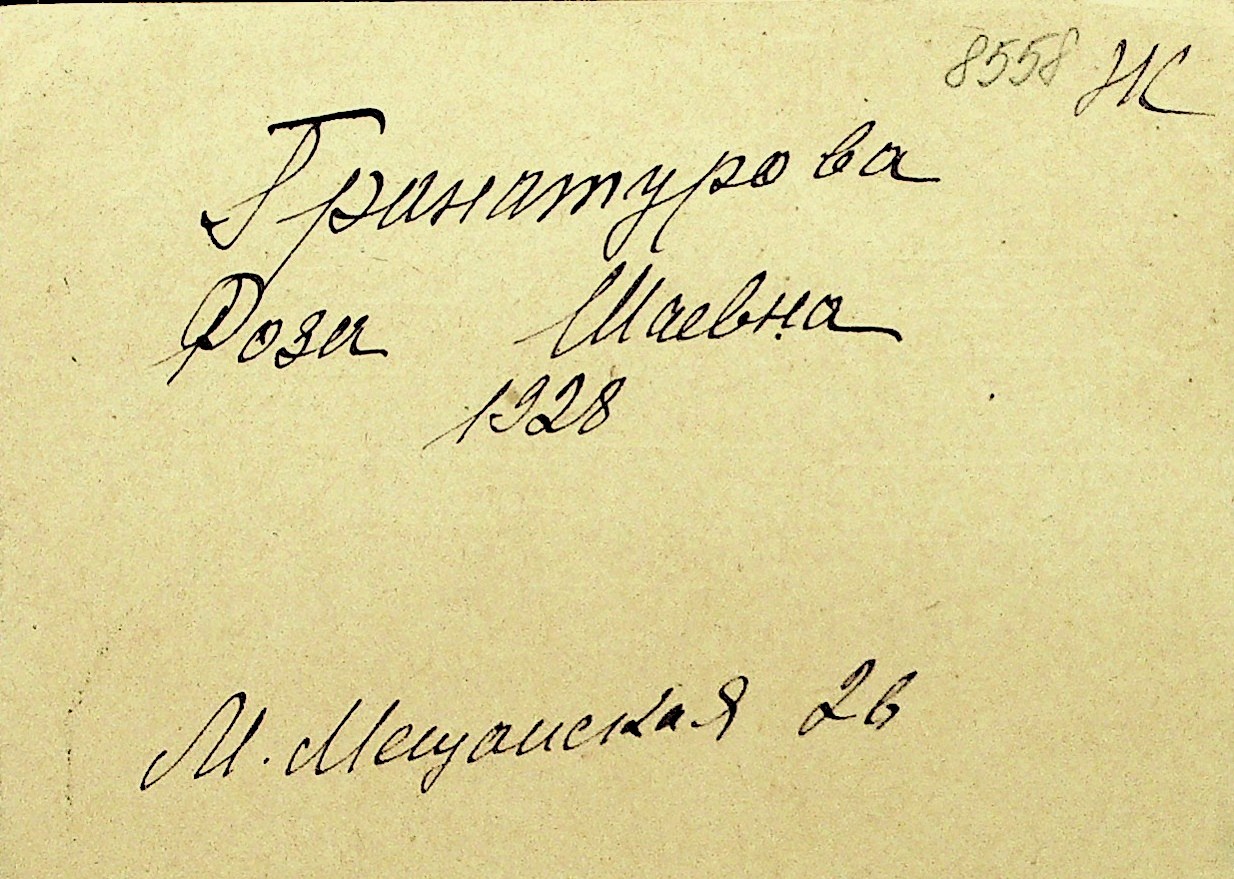 8558 Ж
Гранатурова
Роза Шаевна
1928
М. Мещанская 2в